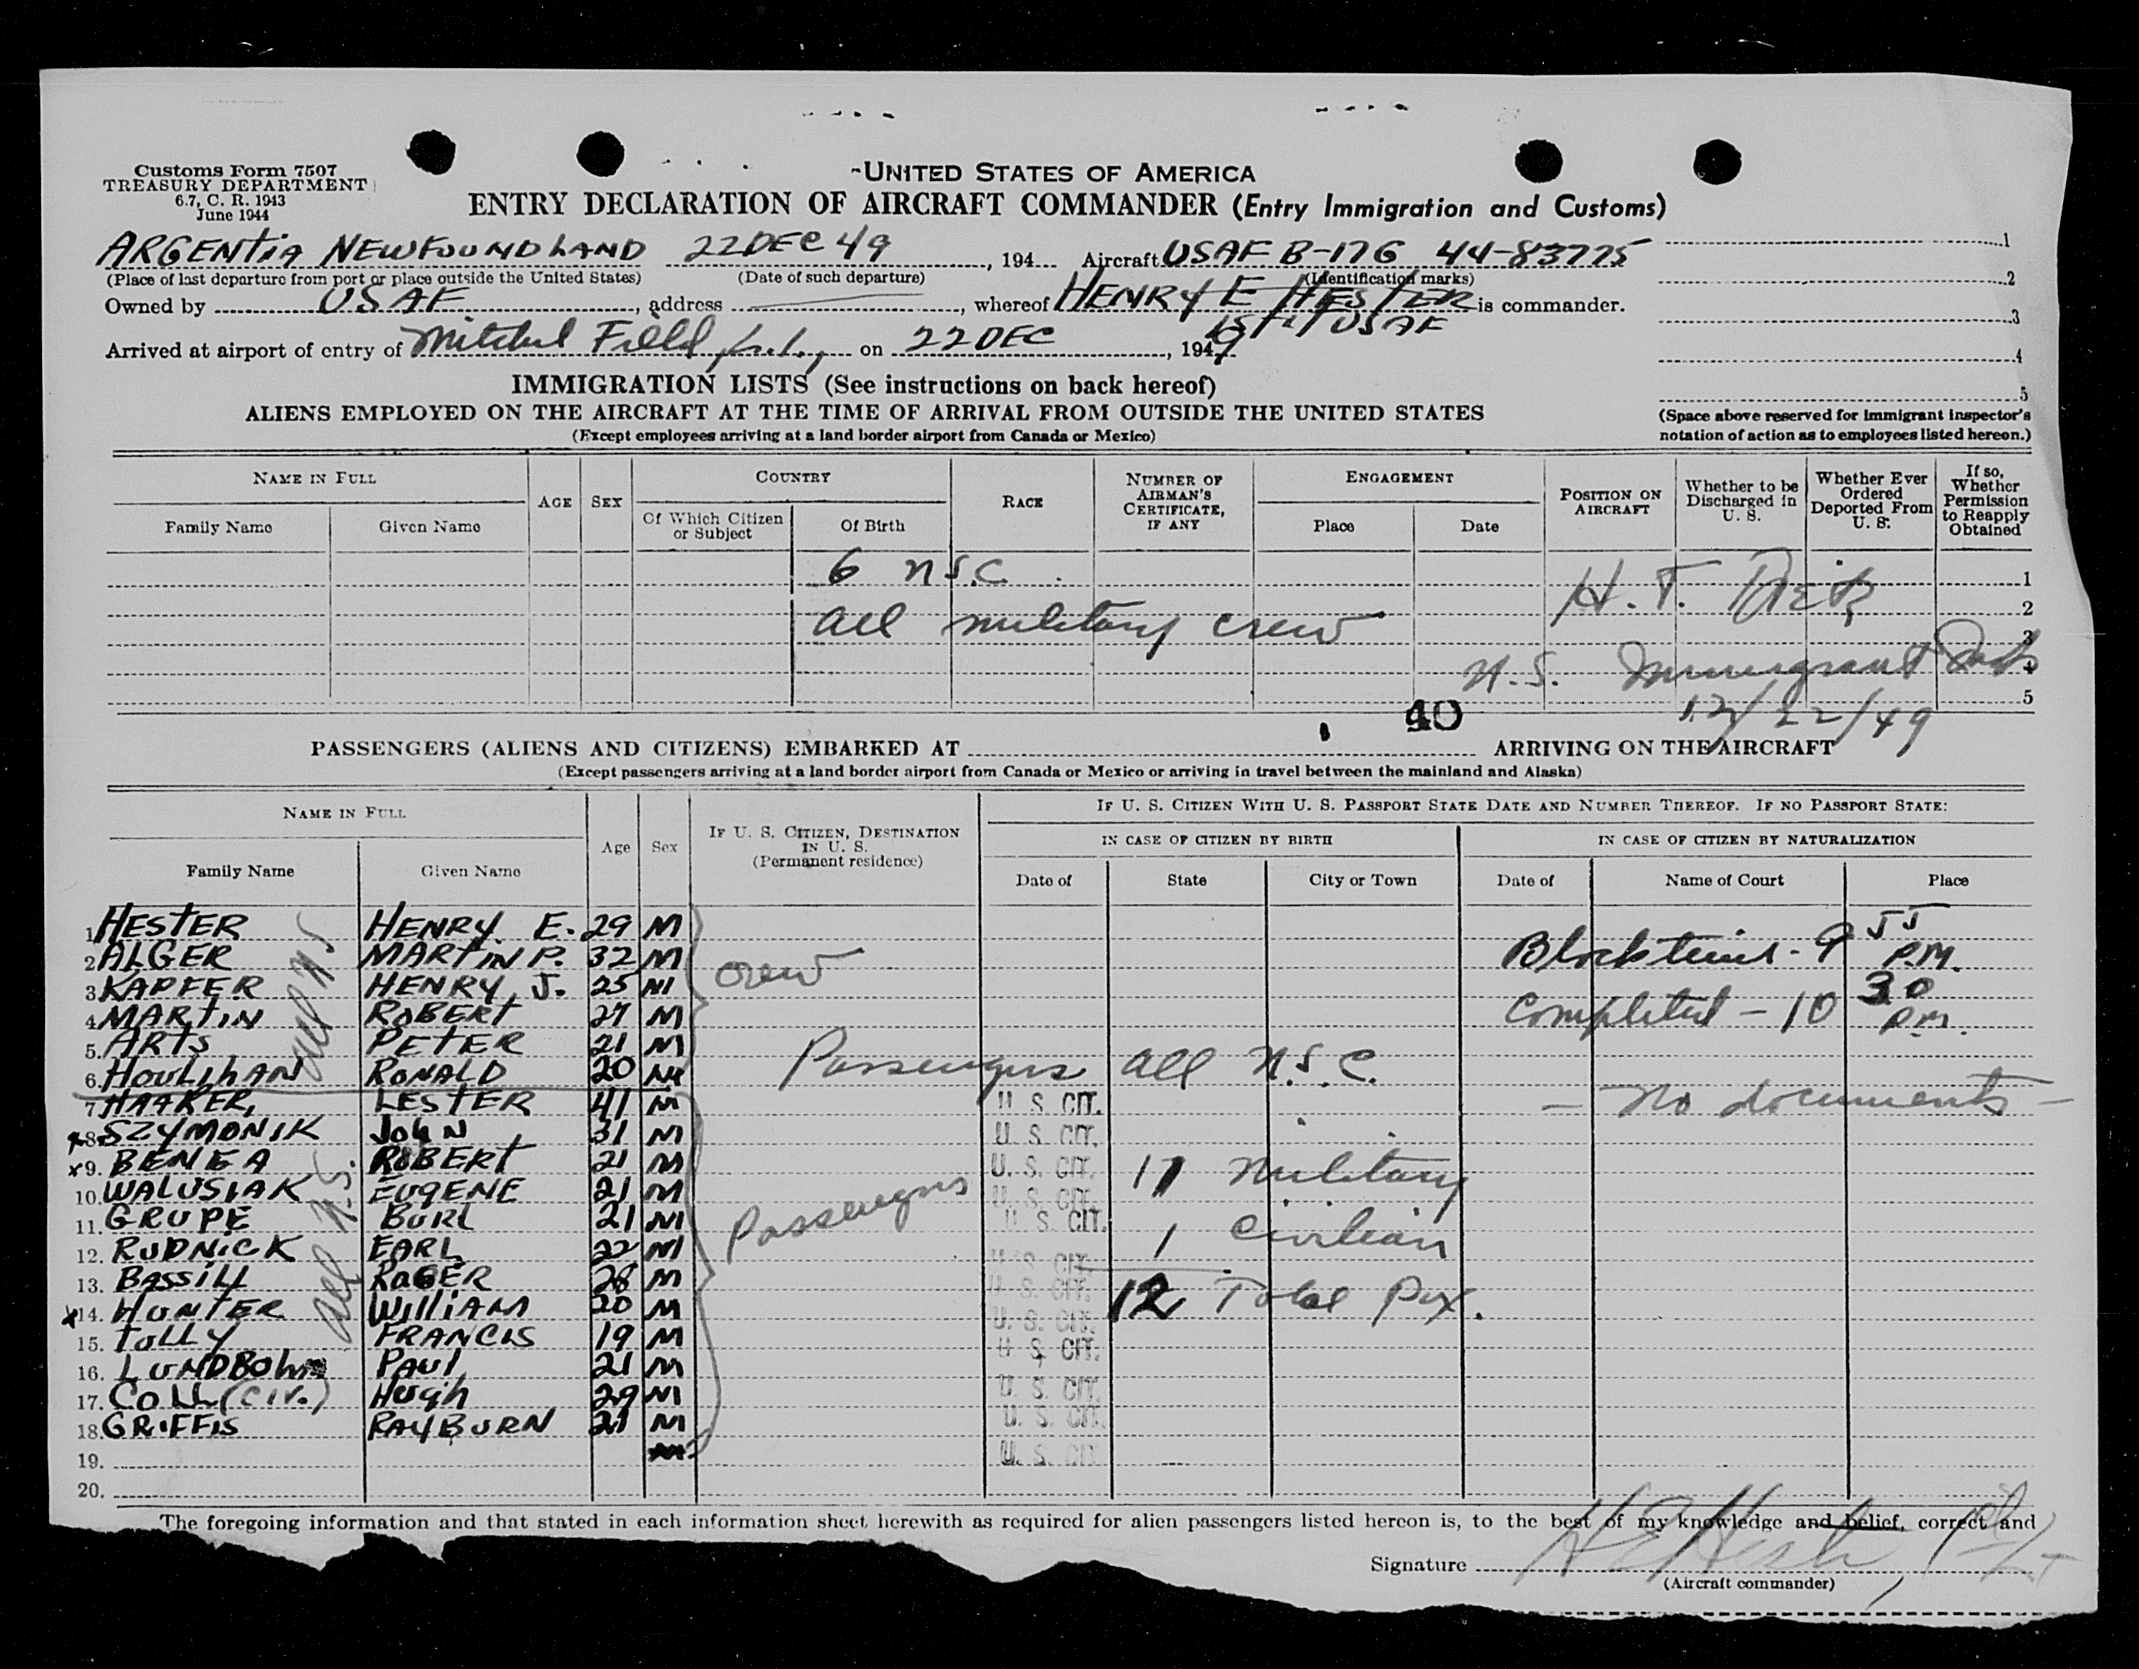 Customs Form 7507
TREASURY DEPARTMENT
6.7, C. R. 1943
June 1944
UNITED STATES OF AMERICA
ENTRY DECLARATION OF AIRCRAFT COMMANDER (Entry Immigration and Customs)
ARGENTIA NEWFOUNDLAND 22 DEC 49, 194 Aircraft USAF B-17G 44-83775
(Place of last departure from port or place outside the United States) (Date of such departure) (Identification marks)
Owned by USAF, address, whereof HENRY E HESTER is commander.
1st Lt USAF
Arrived at airport of entry of Mitchel Field, L.I., on 22 DEC, 1949
1
2
3
4
5
(Space above reserved for immigrant inspector's
notation of action as to employees listed hereon.)
IMMIGRATION LISTS (See instructions on back hereof)
ALIENS EMPLOYED ON THE AIRCRAFT AT THE TIME OF ARRIVAL FROM OUTSIDE THE UNITED STATES
(Except employees arriving at a land border airport from Canada or Mexico)
NAME IN FULL
Family Name Given Name
AGE SEX
COUNTRY
Of Which Citizen or Subject Of Birth
RACE
NUMBER OF AIRMAN'S CERTIFICATE, IF ANY
ENGAGEMENT
Place Date
POSITION ON AIRCRAFT
Whether to be Discharged in U. S.
Whether Ever Ordered Deported From U. S.
If so, Whether Permission to Reapply Obtained
6 USC 1
H. T. 2
all military crew 3
U.S. Immigrant Insp 4
5
12/22/49
40
PASSENGERS (ALIENS AND CITIZENS) EMBARKED AT ARRIVING ON THE AIRCRAFT
(Except passengers arriving at a land border airport from Canada or Mexico or arriving in travel between the mainland and Alaska)
NAME IN FULL
Family Name Given Name
Age Sex
IF U. S. CITIZEN, DESTINATION IN U. S.
(Permanent residence)
IF U. S. CITIZEN WITH U. S. PASSPORT STATE DATE AND NUMBER THEREOF. IF NO PASSPORT STATE:
IN CASE OF CITIZEN BY BIRTH IN CASE OF CITIZEN BY NATURALIZATION
Date of State City or Town Date of Name of Court Place
1 HESTER HENRY E. 29 M
2 ALGER MARTIN P. 32 M
3 KAPFER HENRY J. 25 M
4 MARTIN ROBERT 27 M
5. ARTS PETER 21 M
6. HOULIHAN RONALD 20 M
all U.S
crew
Block time - 9 55 P.M.
Completed - 10 30 P.M.
Passengers all U.S.C.
- No documents -
7 HAAKER, LESTER 41 M U. S. CIT.
x8. SZYMONIK JOHN 31 M U. S. CIT.
x9. BENGA ROBERT 21 M U. S. CIT.
10. WALUSIAK EUGENE 21 M U. S. CIT.
11. GRUPE BURL 21 M U. S. CIT.
12. RUDNICK EARL 22 M U. S. CIT.
13. BASSILL ROGER 28 M U. S. CIT.
x14. HUNTER WILLIAM 20 M U. S. CIT.
15. TOLLY FRANCIS 19 M U. S. CIT.
16. LUNDBOHM PAUL 21 M U. S. CIT.
17. COLL (CIV.) Hugh 29 M U. S. CIT.
18. GRIFFIS RAYBURN 21 M U. S. CIT.
19.
20.
all U.S.
Passengers
11 Military
1 Civilian
12 Total Psx.
The foregoing information and that stated in each information sheet herewith as required for alien passengers listed hereon is, to the best of my knowledge and belief, correct and
Signature H E Hester 1st Lt
(Aircraft commander)